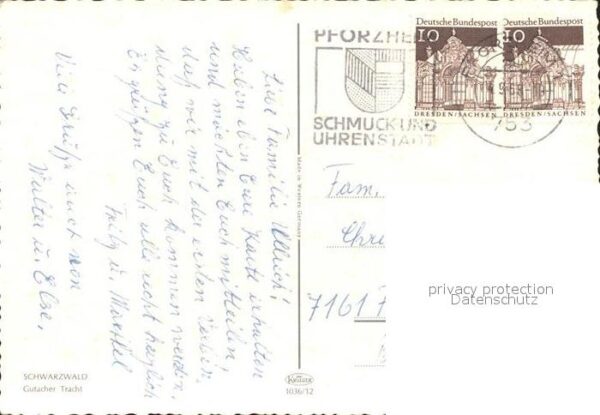 Liebe Familie Ullrich!
Haben eben Eure Karte erhalten
und möchten Euch mitteilen,
daß wir mit der ersten
zu Euch kommen werden.
Es grüßen Euch alle recht herzlich
Fritz u.
Viele Grüße auch von
Walter u. Else.
SCHWARZWALD
Gutacher Tracht
Made in Western Germany
Krüger
1036/12
PFORZHE
SCHMUCK UND
UHRENSTADT
Deutsche Bundespost
10
DRESDEN/SACHSEN
Deutsche Bundespost
10
DRESDEN/SACHSEN
753
Fam.
Chr
7161
privacy protection
Datenschutz